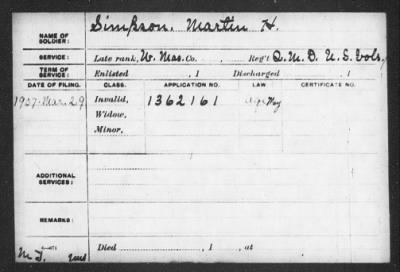 NAME OF SOLDIER: Simpson, Martin H.
SERVICE: Late rank, W. Mas. Co. , Reg't Q. M. D. U. S. Vols.
TERM OF SERVICE: Enlisted , 1 Discharged , 1
DATE OF FILING. CLASS. APPLICATION NO. LAW CERTIFICATE NO.
1927 Mar. 29 Invalid, 1362161
Widow,
Minor,
ADDITIONAL SERVICES:
REMARKS:
Died , 1 , at